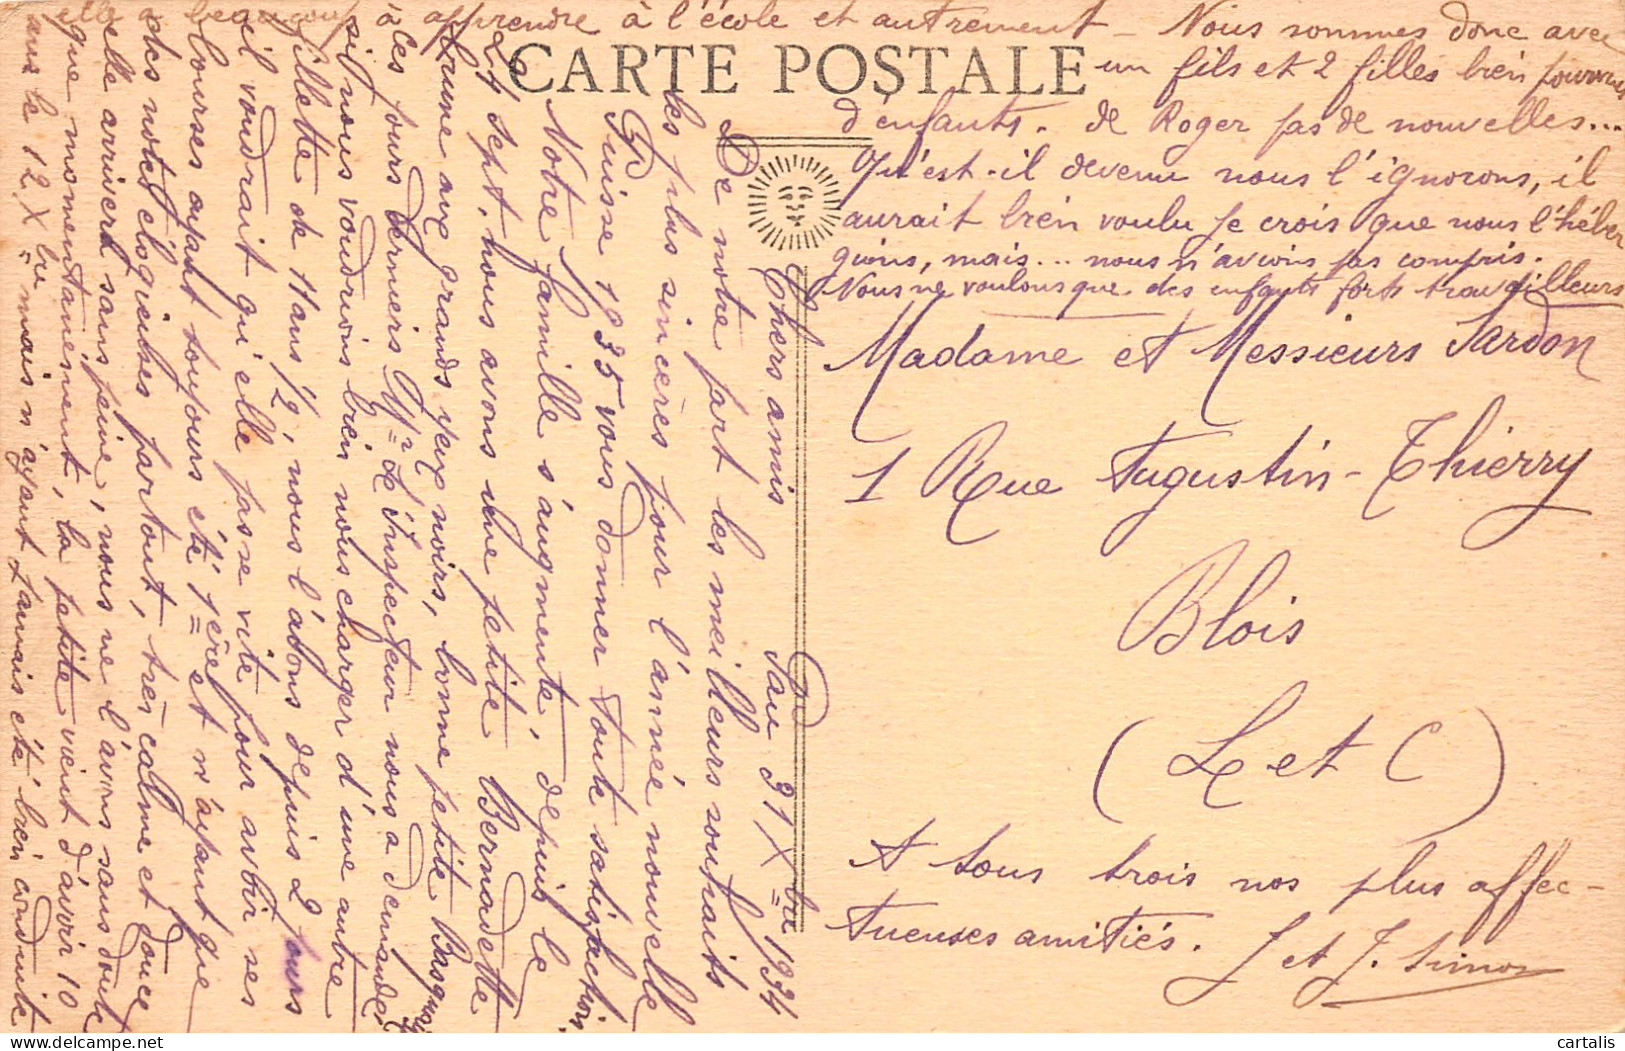 CARTE POSTALE
Pau 31 Xbre 1934
Chers amis
De notre part les meilleurs souhaits
les plus sincères pour l'année nouvelle
Puisse 1935 vous donner toute satisfaction.
Notre famille s'augmente, depuis le
24 Sept. nous avons une petite Bernadette
brune aux grands yeux noirs, bonne petite Basquaise
à ces jours derniers Mr de l'Inspecteur nous a demandé
si nous voudrions bien nous charger d'une autre
fillette de 11 ans 1/2, nous l'avons depuis 2 jours
il voudrait qu'elle passe vite pour avoir ses
bourses ayant toujours été 1ère et n'ayant que
des notes élogieuses partout, très calme et douce
elle arrivera sans peine, nous ne l'avons sans doute
que momentanément, la petite vient d'avoir 10
ans le 12 Xbre mais n'ayant jamais été bien conduite
elle a beaucoup à apprendre à l'école et autrement - Nous sommes donc avec
un fils et 2 filles bien pourvus
d'enfants. de Roger pas de nouvelles...
Qu'est-il devenu nous l'ignorons, il
aurait bien voulu je crois que nous l'héber
gions, mais... nous n'avions pas compris.
Nous ne voulons que des enfants forts travailleurs
Madame et Messieurs Sardon
1 Rue Augustin-Thierry
Blois
(L et C)
A tous trois nos plus affec-
tueuses amitiés.
J et J. Simon
cartalis